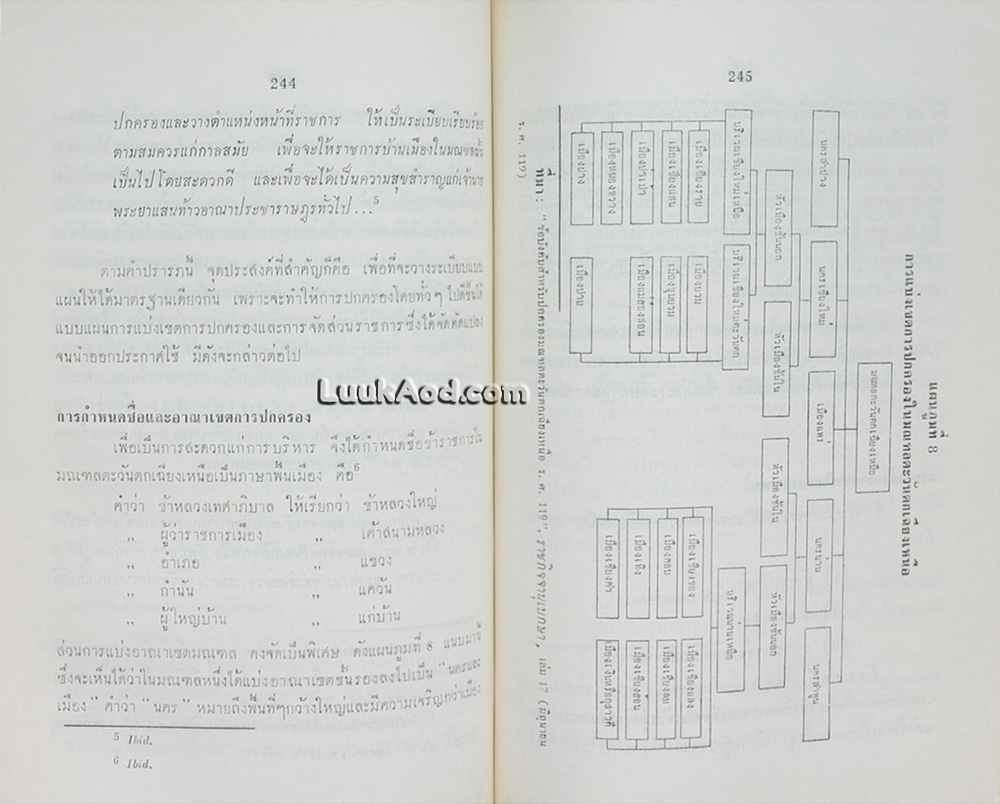 244
ปกครองและวางตำแหน่งหน้าที่ราชการ ให้เป็นระเบียบเรียบร้อย
ตามสมควรแก่กาลสมัย เพื่อจะให้ราชการบ้านเมืองในมณฑลนั้น
เป็นไปโดยสะดวกดี และเพื่อจะได้เป็นความสุขสำราญแก่เจ้านาย
พระยาแสนท้าวอาณาประชาราษฎรทั่วไป ...5
ตามคำปรารภนี้ จุดประสงค์ที่สำคัญก็คือ เพื่อที่จะวางระเบียบแบบ
แผนให้ได้มาตรฐานเดียวกัน เพราะจะทำให้การปกครองโดยทั่วๆ ไปดีขึ้นได้
แบบแผนการแบ่งเขตการปกครองและการจัดส่วนราชการซึ่งได้จัดดัดแปลง
จนนำออกประกาศใช้ มีดังจะกล่าวต่อไป
LuukAod.com
การกำหนดชื่อและอาณาเขตการปกครอง
เพื่อเป็นการสะดวกแก่การบริหาร จึงได้กำหนดชื่อข้าราชการใน
มณฑลตะวันตกเฉียงเหนือเป็นภาษาพื้นเมือง คือ6
คำว่า ข้าหลวงเทศาภิบาล ให้เรียกว่า ข้าหลวงใหญ่
,, ผู้ว่าราชการเมือง ,, เค้าสนามหลวง
,, อำเภอ ,, แขวง
,, กำนัน ,, แคว้น
,, ผู้ใหญ่บ้าน ,, แก่บ้าน
ส่วนการแบ่งอาณาเขตมณฑล คงจัดเป็นพิเศษ ดังแผนภูมิที่ 8 แนบมานี้
ซึ่งจะเห็นได้ว่าในมณฑลหนึ่งได้แบ่งอาณาเขตชั้นรองลงไปเป็น "นครและ
เมือง" คำว่า "นคร" หมายถึงพื้นที่ๆกว้างใหญ่และมีความเจริญกว่าเมือง
5 Ibid.
6 Ibid.
245
แผนภูมิที่ 8
การแบ่งเขตการปกครองในมณฑลตะวันตกเฉียงเหนือ
มณฑลตะวันตกเฉียงเหนือ
นครลำปาง
นครเชียงใหม่
เมืองแพร่
นครน่าน
นครลำพูน
หัวเมืองชั้นนอก
หัวเมืองชั้นใน
หัวเมืองชั้นใน
หัวเมืองชั้นนอก
บริเวณเชียงใหม่เหนือ
บริเวณเชียงใหม่ตะวันตก
บริเวณน่านเหนือ
เมืองเชียงราย
เมืองเชียงแสน
เมืองป่าเป้า
เมืองพวง
เมืองฝาง
เมืองยวม
เมืองขุนยวม
เมืองแม่ฮ่องสอน
เมืองปาย
เมืองเชียงของ
เมืองเทิง
เมืองเชียงคำ
เมืองเชียงแลง
เมืองเชียงลม
เมืองเชียงฮ่อน
ที่มา : "ข้อบังคับสำหรับปกครองมณฑลตะวันตกเฉียงเหนือ ร.ศ. 119", ราชกิจจานุเบกษา, เล่ม 17 (มิถุนายน
ร.ศ. 119)